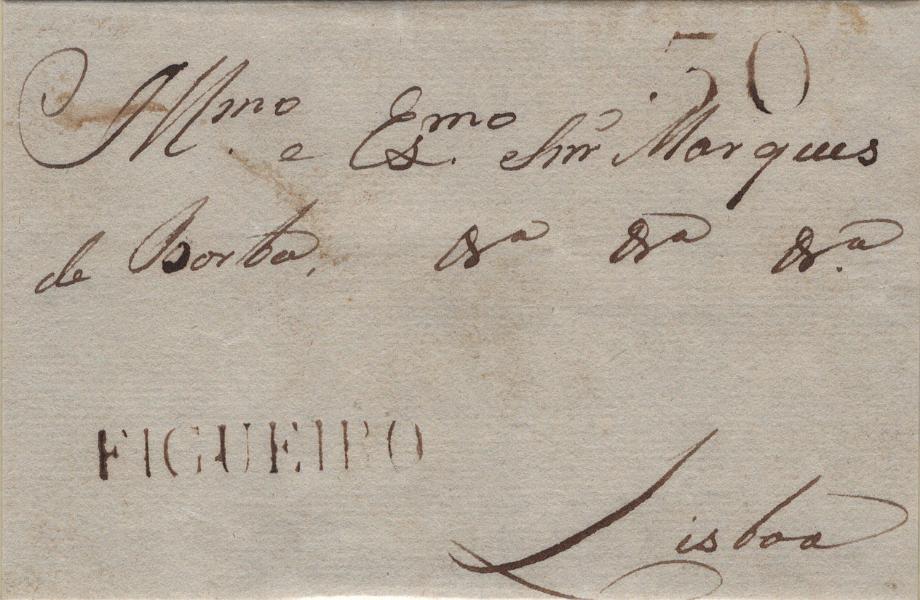 50
Illmo. e Exmo. Snr Marques
de Borba, &a &a &a.
FIGUEIRO
Lisboa